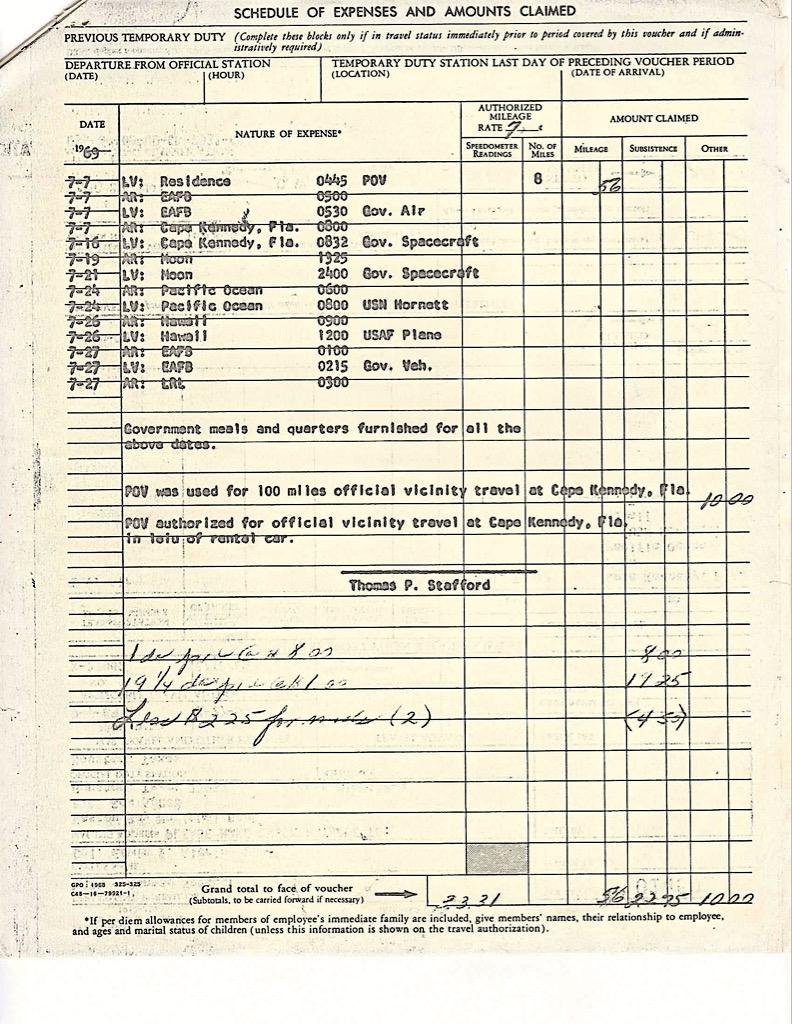 SCHEDULE OF EXPENSES AND AMOUNTS CLAIMED
PREVIOUS TEMPORARY DUTY (Complete these blocks only if in travel status immediately prior to period covered by this voucher and if admin-
istratively required)
DEPARTURE FROM OFFICIAL STATION TEMPORARY DUTY STATION LAST DAY OF PRECEDING VOUCHER PERIOD
(DATE) (HOUR) (LOCATION) (DATE OF ARRIVAL)
DATE NATURE OF EXPENSE* AUTHORIZED MILEAGE RATE 7 ¢ AMOUNT CLAIMED
1969 SPEEDOMETER READINGS NO. OF MILES MILEAGE SUBSISTENCE OTHER
7-7 LV: Residence 0445 POV 8 56
7-7 AR: EAFB 0500
7-7 LV: EAFB 0530 Gov. Air
7-7 AR: Cape Kennedy, Fla. 0800
7-16 LV: Cape Kennedy, Fla. 0832 Gov. Spacecraft
7-19 AR: Moon 1325
7-21 LV: Moon 2400 Gov. Spacecraft
7-24 AR: Pacific Ocean 0600
7-24 LV: Pacific Ocean 0800 USN Hornett
7-26 AR: Hawaii 0900
7-26 LV: Hawaii 1200 USAF Plane
7-27 AR: EAFB 0100
7-27 LV: EAFB 0215 Gov. Veh.
7-27 AR: LRL 0300
Government meals and quarters furnished for all the
above dates.
POV was used for 100 miles official vicinity travel at Cape Kennedy, Fla. 10 00
POV authorized for official vicinity travel at Cape Kennedy, Fla.
in leiu of rental car.
Thomas P. Stafford
1 da 8 00 8 00
19 1/4 da 1 00 19 25
Less $2 25 for meals (2) (4 50)
GPO : 1968 325-325
C48-16-79921-1
Grand total to face of voucher
(Subtotals, to be carried forward if necessary) 33 31 56 22 75 10 00
*If per diem allowances for members of employee's immediate family are included, give members' names, their relationship to employee,
and ages and marital status of children (unless this information is shown on the travel authorization).